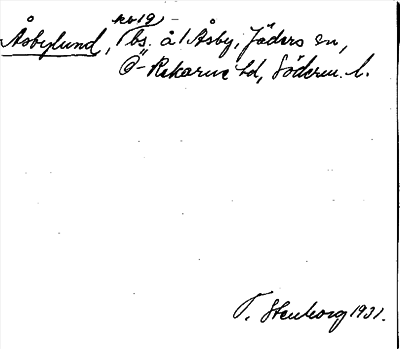 nr 19
Åsbylund, bs. å 1 Åsby, Jäders sn,
Ö-Rekarne hd, Söderm. l.
T. Stenborg 1931.